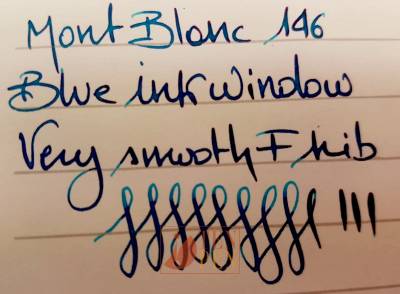 Mont Blanc 146
Blue ink window
Very smooth F nib